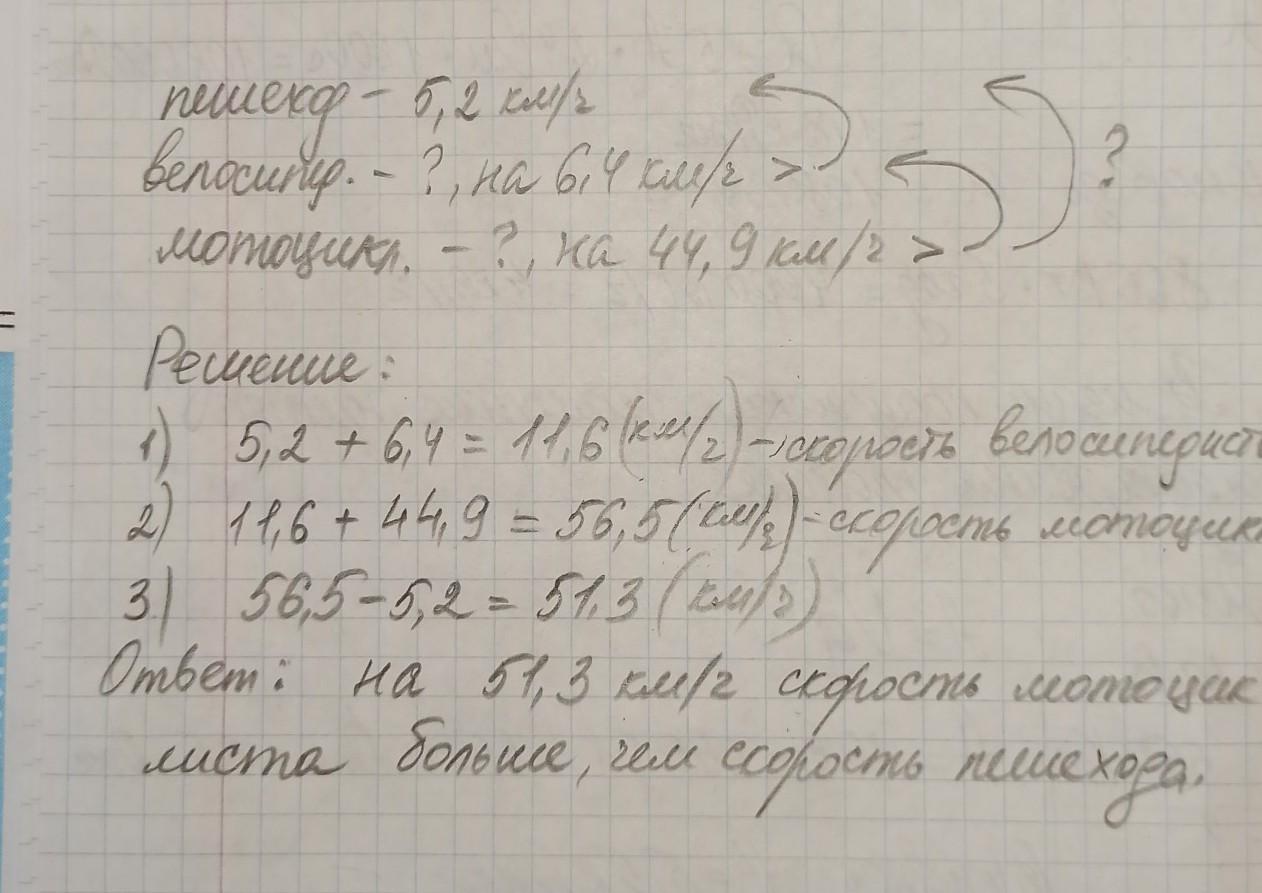 пешеход - 5,2 км/ч
велосипед. - ?, на 6,4 км/ч > ?
мотоцикл. - ?, на 44,9 км/ч >
Решение:
1) 5,2 + 6,4 = 11,6 (км/ч) - скорость велосипедист
2) 11,6 + 44,9 = 56,5 (км/ч) - скорость мотоцикл
3) 56,5 - 5,2 = 51,3 (км/ч)
Ответ: на 51,3 км/ч скорость мотоцик
листа больше, чем скорость пешехода.